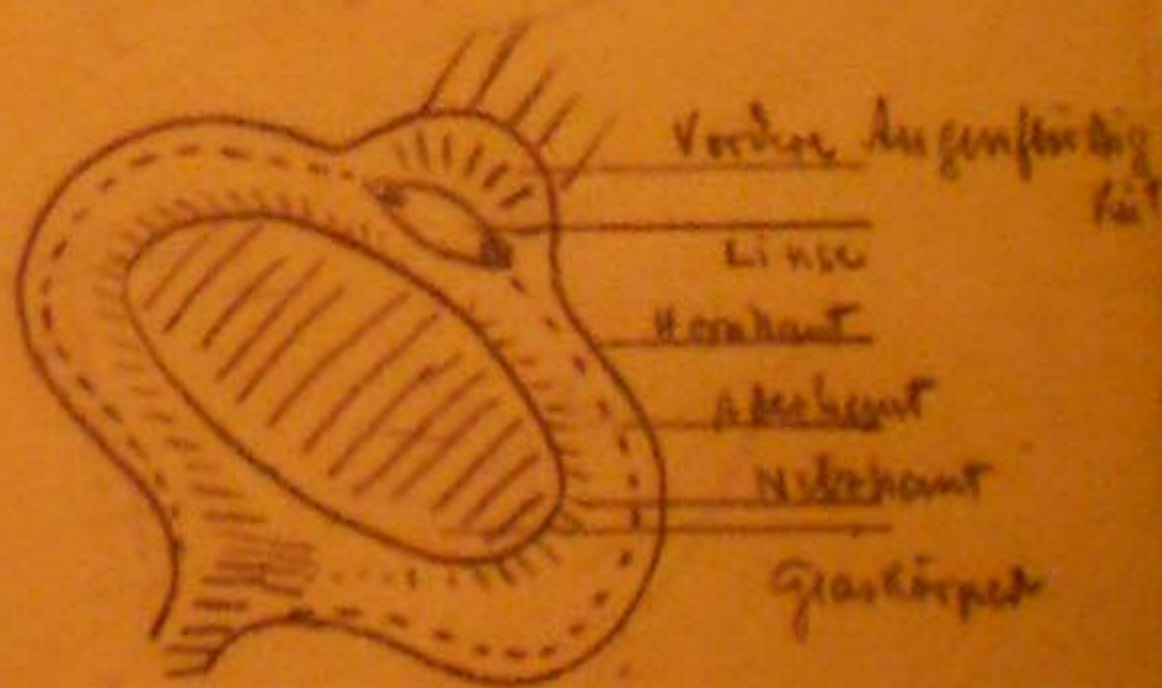 Vordere Augenflüssig
keit
Linse
Hornhaut
Aderhaut
Netzhaut
Glaskörper